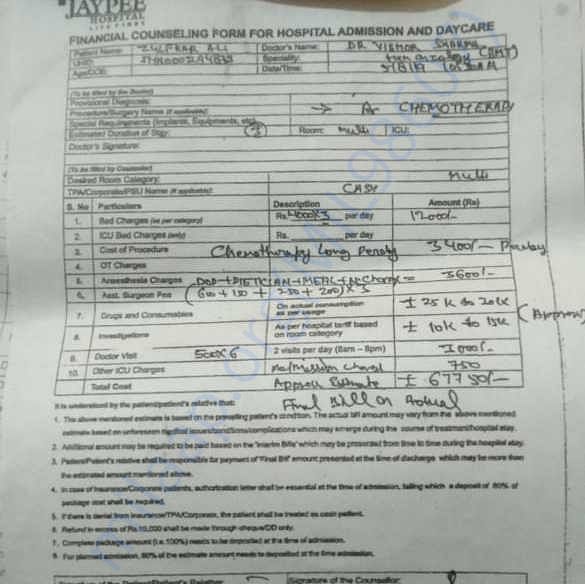 JAYPEE
HOSPITAL
FINANCIAL COUNSELING FORM FOR HOSPITAL ADMISSION AND DAYCARE
Patient Name: ZULFKAR ALI Doctor's Name: DR VIBHOR SHARMA
UHID: Speciality: (BMT)
Age/DOB: Date/Time:
(To be filled by the Doctor)
Provisional Diagnosis:
Procedure/Surgery Name (if applicable): → for CHEMOTHERAPY
Special Requirements (Implants, Equipments, etc)
Estimated Duration of Stay: (3) Room: Multi ICU:
Doctor's Signature:
(To be filled by Counselor)
Desired Room Category: Multi
TPA/Corporate/PSU Name (if applicable): CASH
S. No Particulars Description Amount (Rs)
1. Bed Charges (as per category) Rs. 4000x3 per day 12000/-
2. ICU Bed Charges (only) Rs. per day
3. Cost of Procedure Chemotherapy Long 3400/- Per day
4. OT Charges
5. Anaesthesia Charges DOD+DIETICIAN+MEAL+N.Charge = 3600/-
6. Asst. Surgeon Fee (600 + 150 + 250 + 200) x 3
7. Drugs and Consumables On actual consumption as per usage
8. Investigations As per hospital tariff based on room category ± 10K to 15K
9. Doctor Visit 500x6 2 visits per day (8am – 8pm) 3000/-
10. Other ICU Charges 750
Total Cost ± 67750/-
Final Bill on Actual
It is understood by the patient/patient's relative that:
1. The above mentioned estimate is based on the prevailing patient's condition. The actual bill amount may vary from the above mentioned
estimate based on unforeseen medical issues/conditions/complications which may emerge during the course of treatment/hospital stay.
2. Additional amount may be required to be paid based on the 'Interim Bills' which may be presented from time to time during the hospital stay.
3. Patient/Patient's relative shall be responsible for payment of 'Final Bill' amount presented at the time of discharge which may be more than
the estimated amount mentioned above.
4. In case of Insurance/Corporate patients, authorization letter shall be essential at the time of admission, failing which a deposit of 80% of
package cost shall be required.
5. If there is denial from Insurance/TPA/Corporate, the patient shall be treated as cash patient.
6. Refund in excess of Rs.10,000 shall be made through cheque/DD only.
7. Complete package amount (i.e.100%) needs to be deposited at the time of admission.
8. For planned admission, 80% of the estimate amount needs to deposited at the time of admission.
Signature of the Patient/Patient's Relative: Signature of the Counsellor: